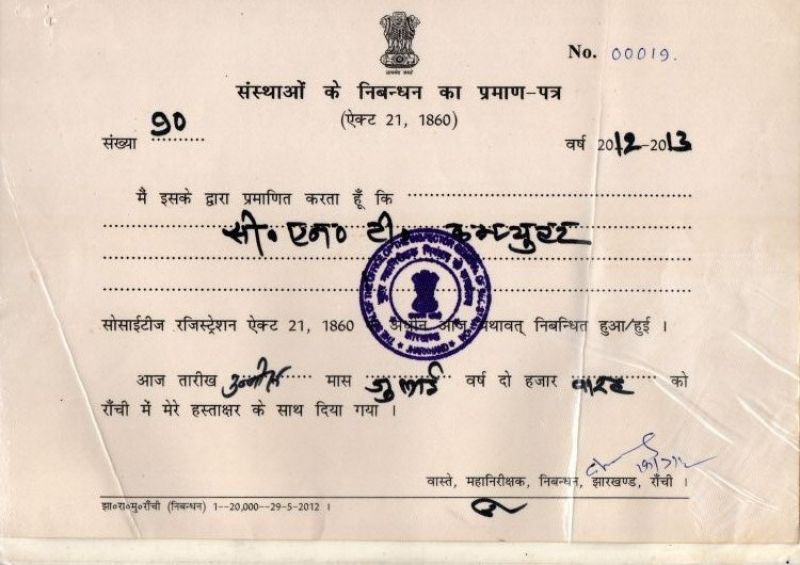 सत्यमेव जयते
No. 00019.
संस्थाओं के निबन्धन का प्रमाण-पत्र
(ऐक्ट 21, 1860)
संख्या 90 वर्ष 2012-2013
मैं इसके द्वारा प्रमाणित करता हूँ कि
सी० एन० टी० कम्प्युटर
सोसाईटीज रजिस्ट्रेशन ऐक्ट 21, 1860 के अधीन आज यथावत् निबन्धित हुआ/हुई ।
आज तारीख उन्नीस मास जुलाई वर्ष दो हजार बारह को
राँची में मेरे हस्ताक्षर के साथ दिया गया ।
वास्ते, महानिरीक्षक, निबन्धन, झारखण्ड, राँची ।
झा०रा०मु०राँची (निबन्धन) 1--20,000--29-5-2012 ।